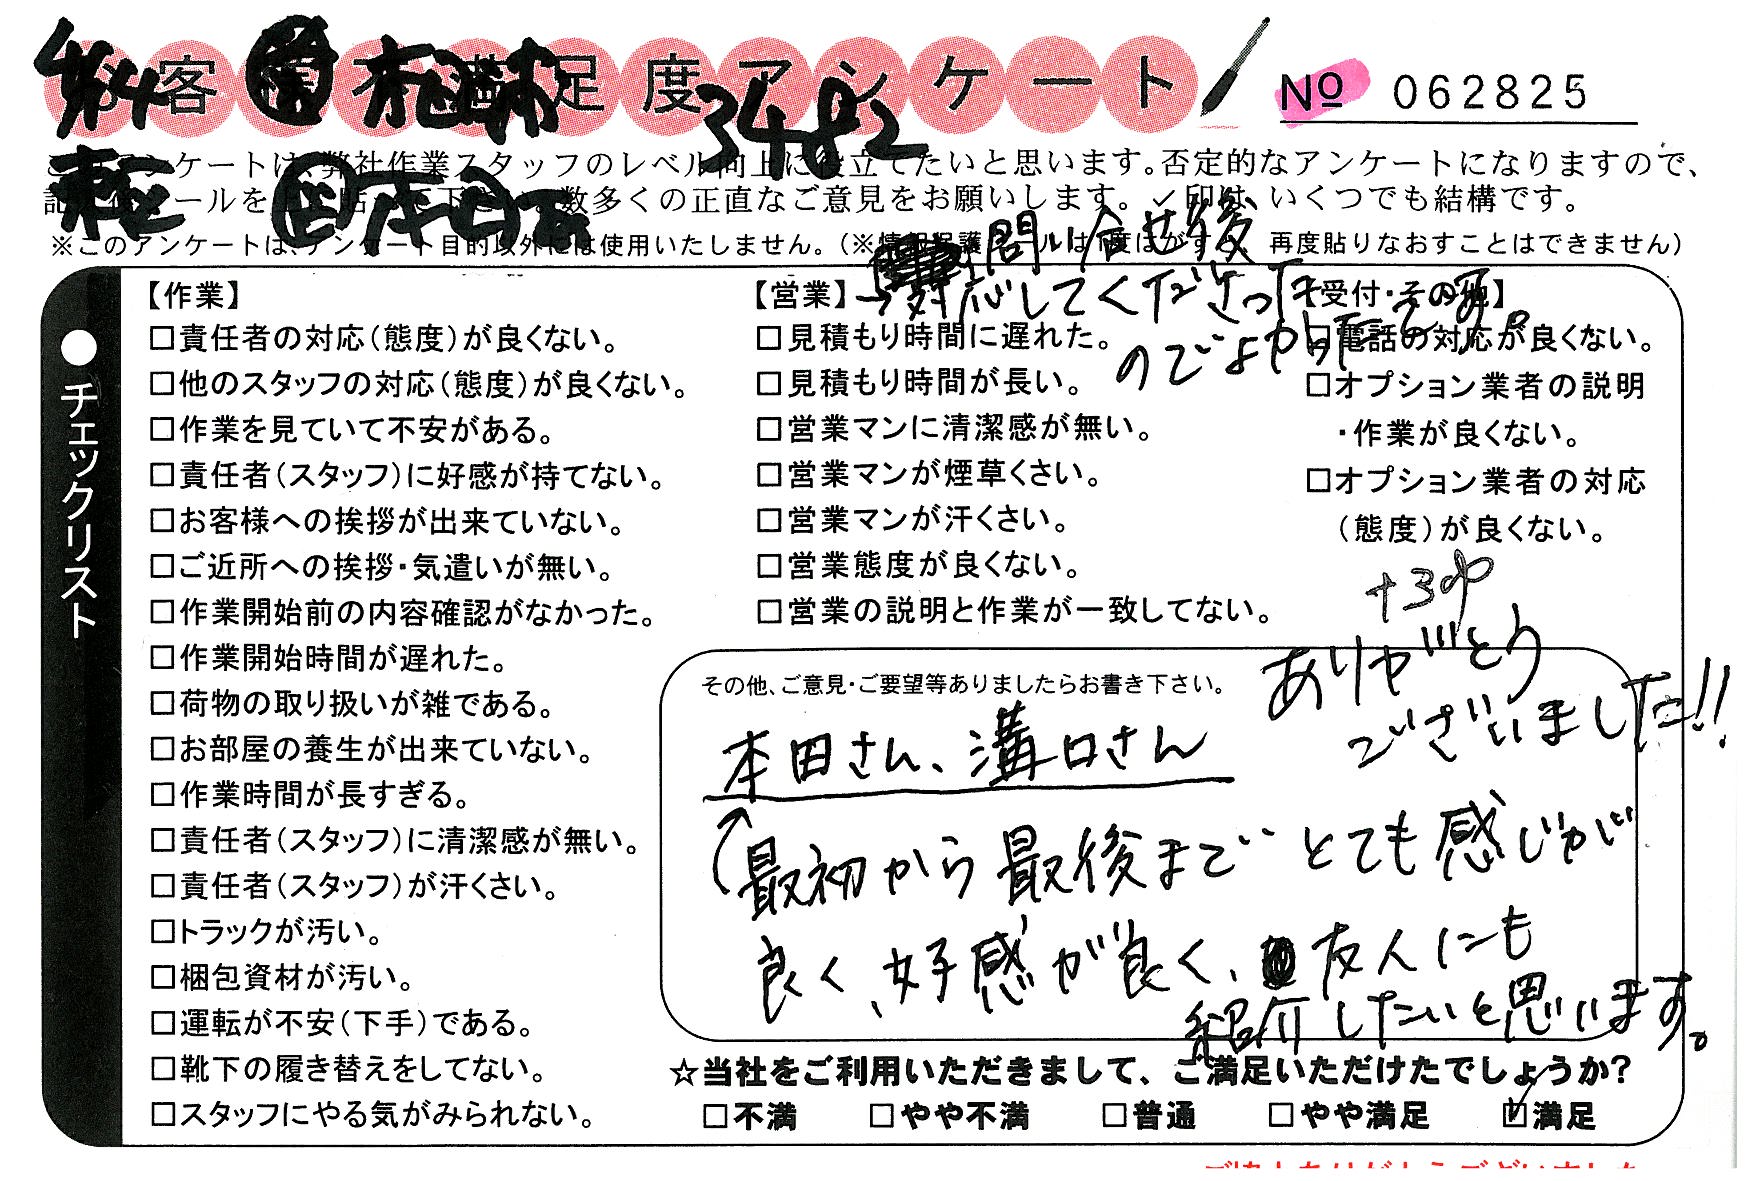 お客様不満足度アンケート
№ 062825
3482
このアンケートは、弊社作業スタッフのレベル向上に役立てたいと思います。否定的なアンケートになりますので、
数多くの正直なご意見をお願いします。✓印は、いくつでも結構です。
※このアンケートは、アンケート目的以外には使用いたしません。(※情報保護シールは1度はがすと、再度貼りなおすことはできません)
●チェックリスト
【作業】
□責任者の対応(態度)が良くない。
□他のスタッフの対応(態度)が良くない。
□作業を見ていて不安がある。
□責任者(スタッフ)に好感が持てない。
□お客様への挨拶が出来ていない。
□ご近所への挨拶・気遣いが無い。
□作業開始前の内容確認がなかった。
□作業開始時間が遅れた。
□荷物の取り扱いが雑である。
□お部屋の養生が出来ていない。
□作業時間が長すぎる。
□責任者(スタッフ)に清潔感が無い。
□責任者(スタッフ)が汗くさい。
□トラックが汚い。
□梱包資材が汚い。
□運転が不安(下手)である。
□靴下の履き替えをしてない。
□スタッフにやる気がみられない。
【営業】
□見積もり時間に遅れた。
□見積もり時間が長い。
□営業マンに清潔感が無い。
□営業マンが煙草くさい。
□営業マンが汗くさい。
□営業態度が良くない。
□営業の説明と作業が一致してない。
問い合せ後
→対応してくださった
のでよかったです。
【受付・その他】
□電話の対応が良くない。
□オプション業者の説明
・作業が良くない。
□オプション業者の対応
(態度)が良くない。
+3
ありがとう
ございました!!
その他、ご意見・ご要望等ありましたらお書き下さい。
本田さん、溝口さん
最初から最後までとても感じが
良く、好感が良く、友人にも
紹介したいと思います。
☆当社をご利用いただきまして、ご満足いただけたでしょうか?
□不満 □やや不満 □普通 □やや満足 ☑満足